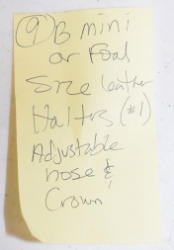 ⑨ B mini
or Foal
Size leather
Halters (#1)
Adjustable
nose &
Crown